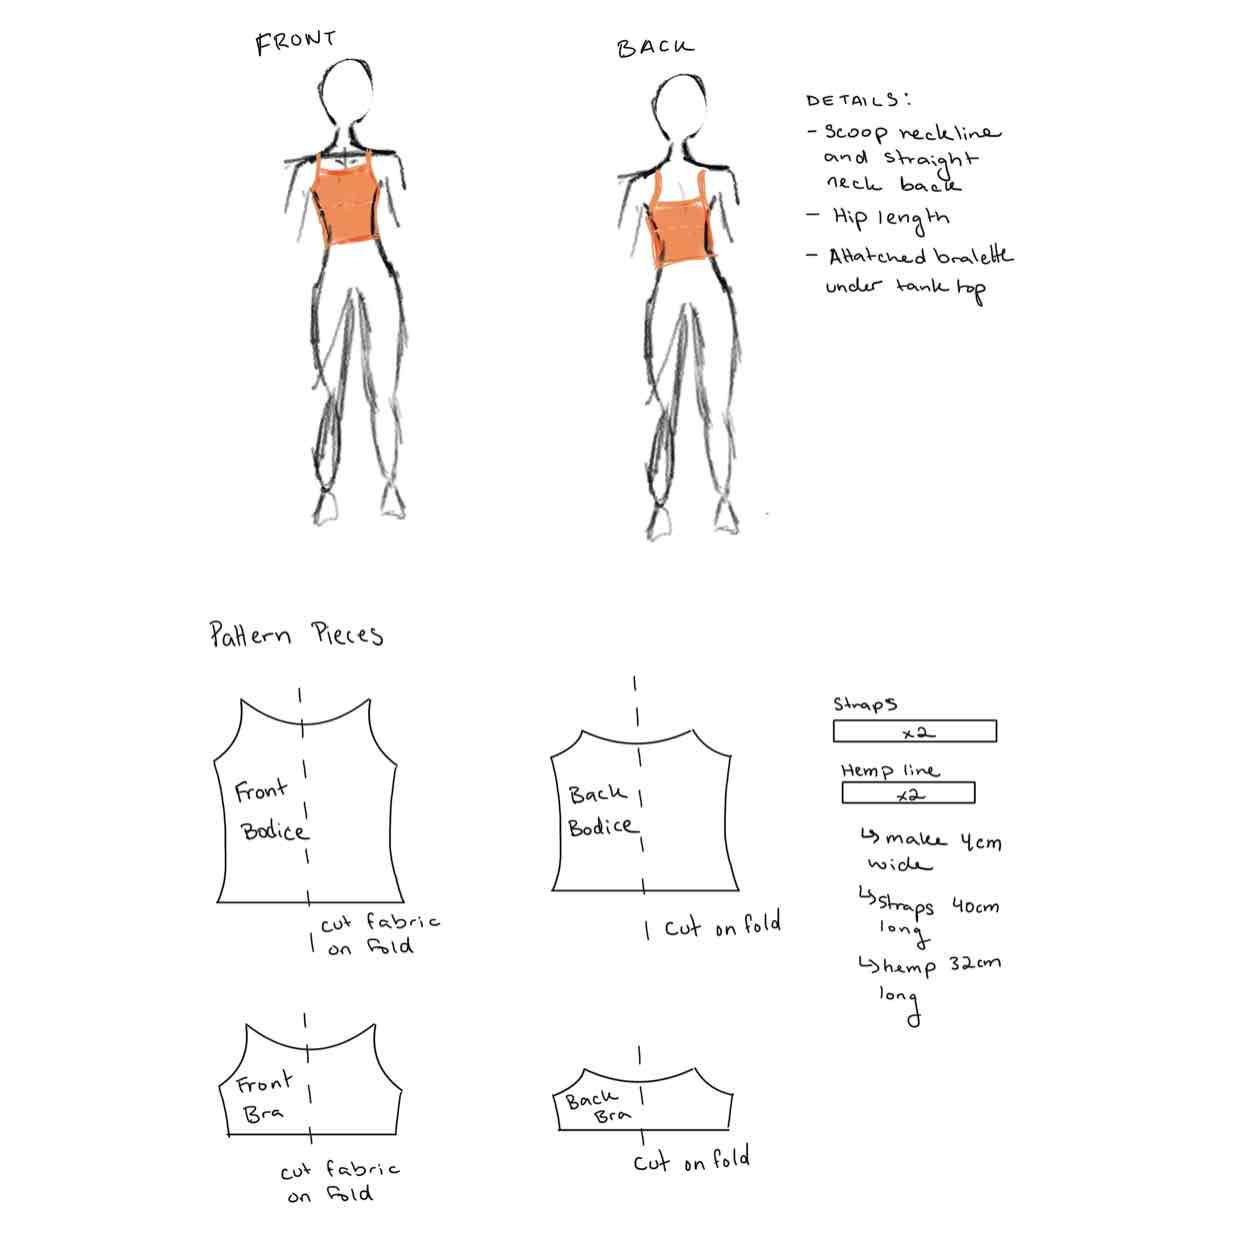 FRONT
BACK
DETAILS:
- Scoop neckline
and straight
neck back
- Hip length
- Attatched bralette
under tank top
Pattern Pieces
Front
Bodice
cut fabric
on fold
Back
Bodice
cut on fold
Straps
x2
Hemp line
x2
↳ make 4cm
wide
↳ straps 40cm
long
↳ hemp 32cm
long
Front
Bra
cut fabric
on fold
Back
Bra
cut on fold